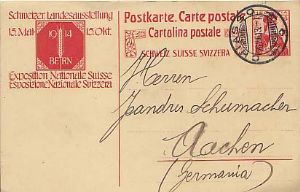 Schweizer. Landesausstellung
15. Mai 15. Okt.
19 14
BERN
Exposition Nationale Suisse
Esposizione Nazionale Svizzera
Postkarte. Carte postale
Cartolina postale
SCHWEIZ SUISSE SVIZZERA
Herren
Schumacher
Aachen
(Germania)